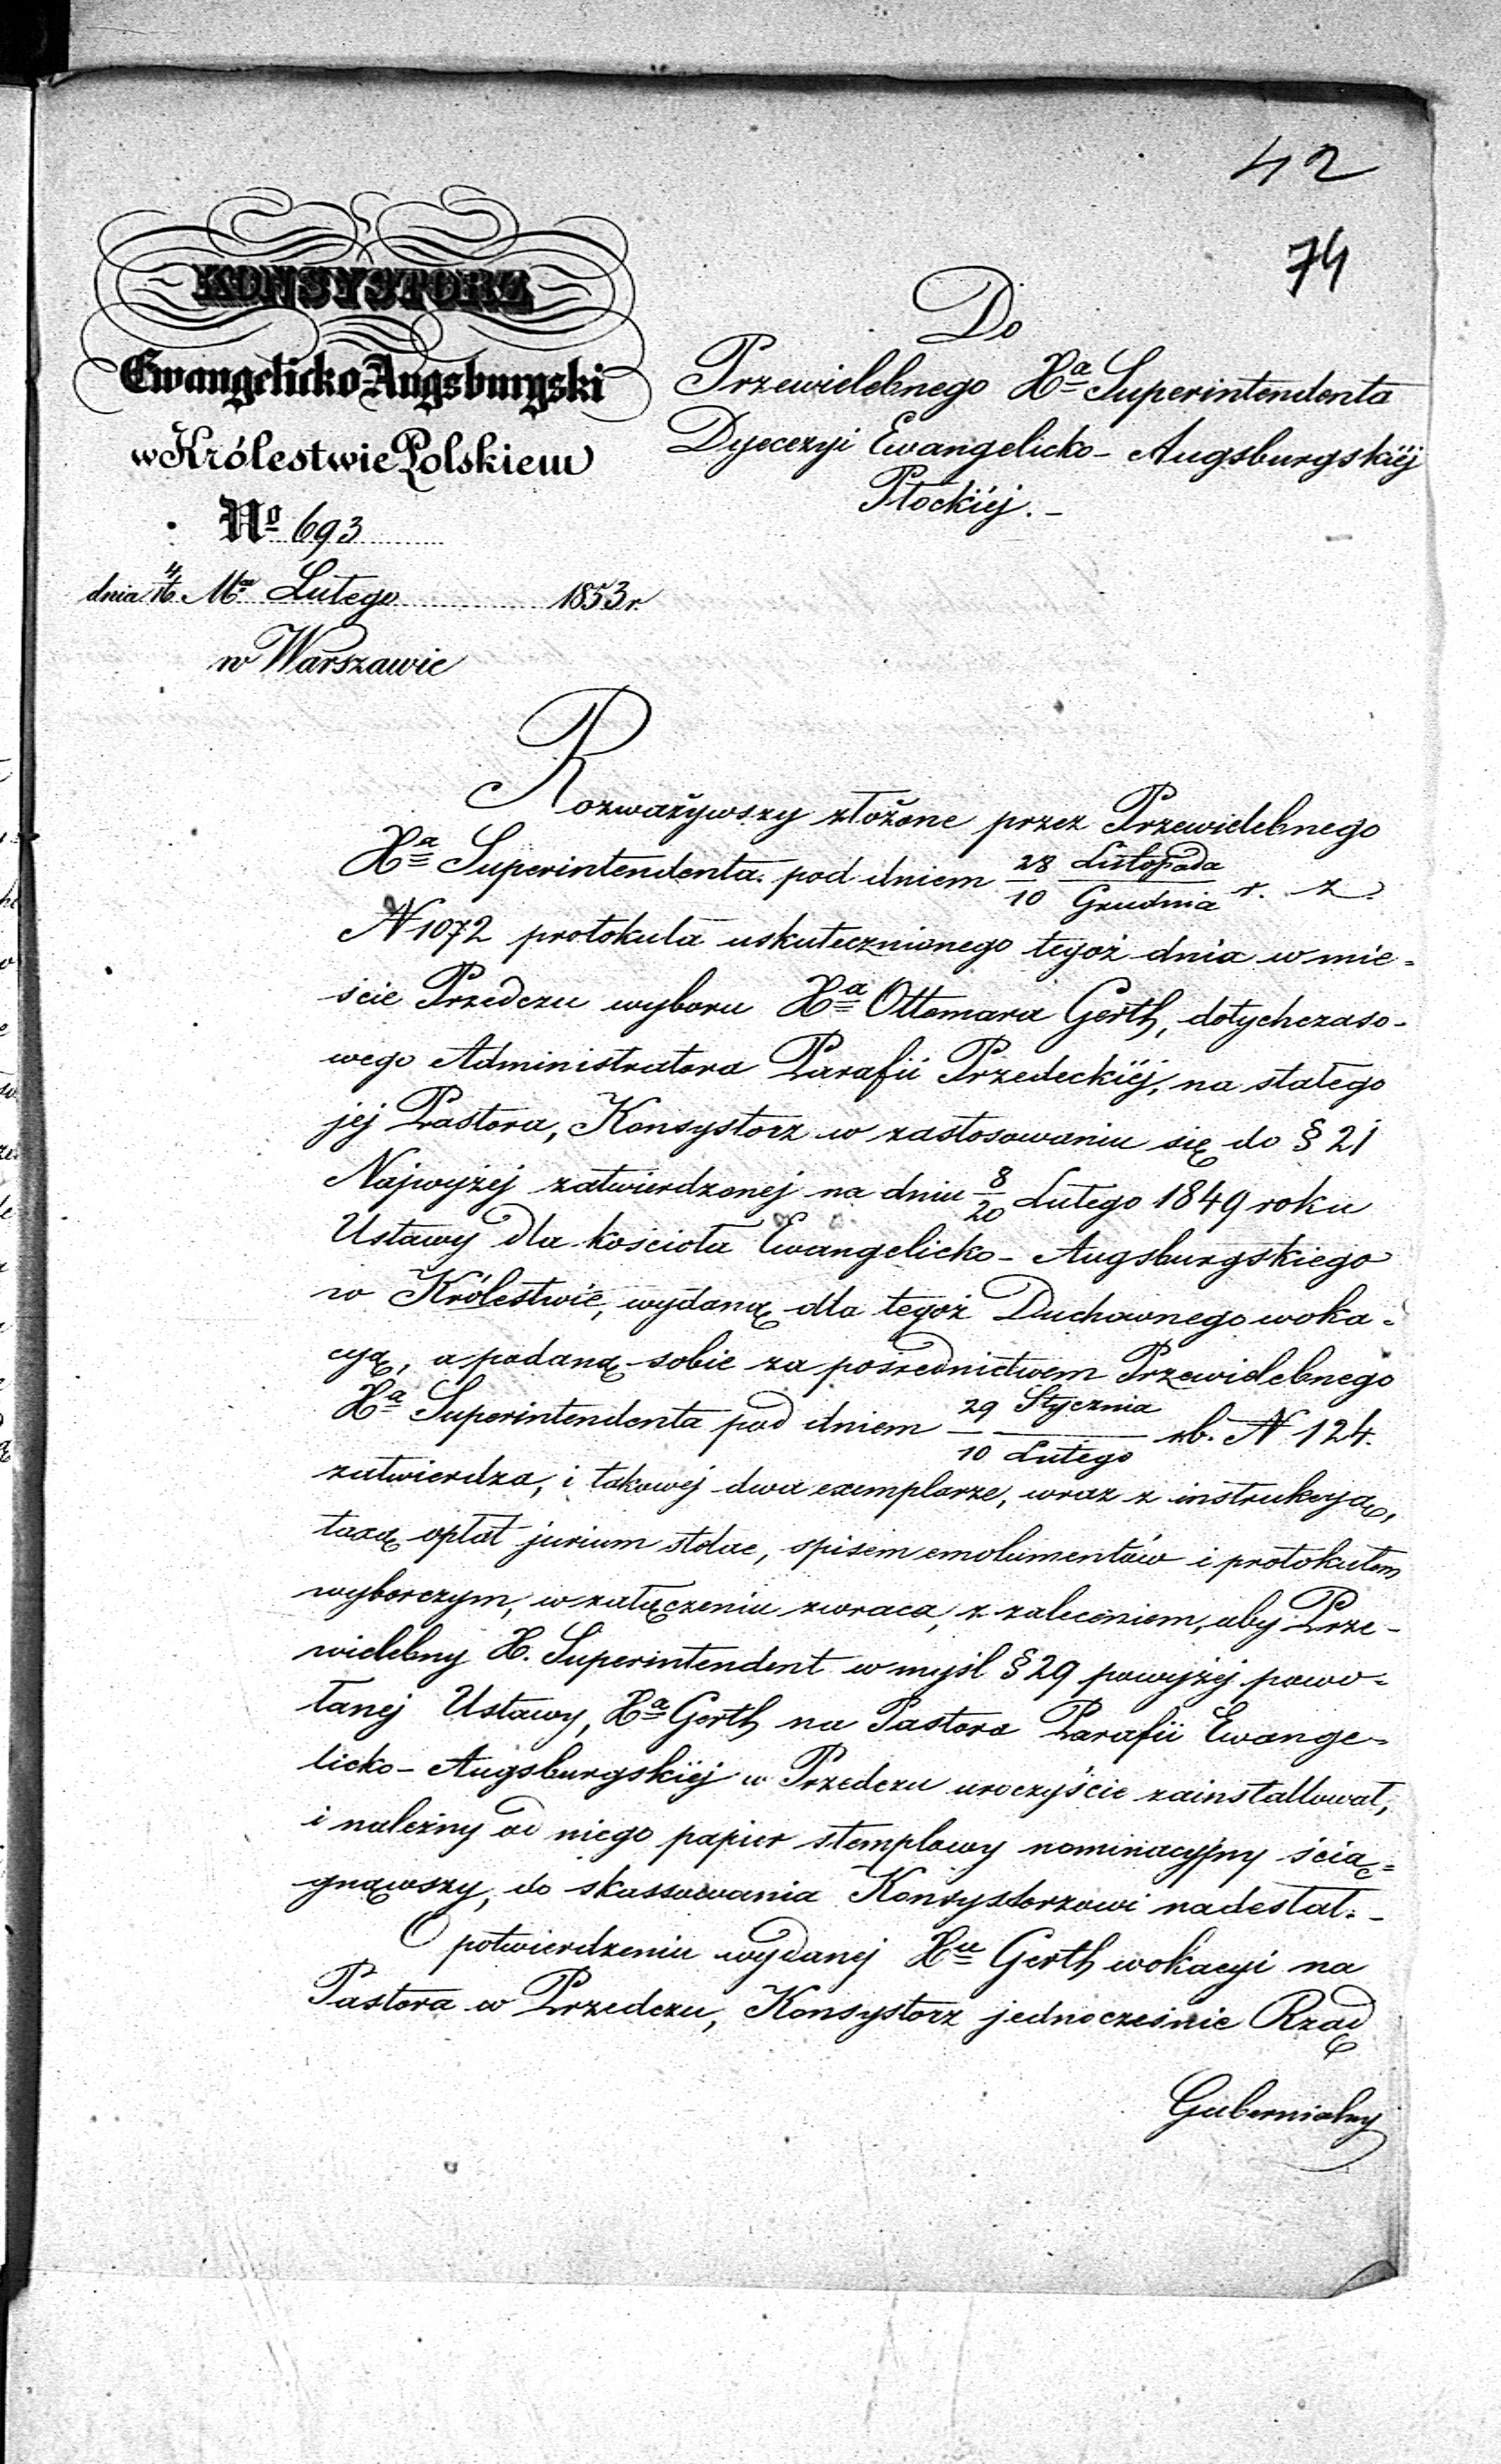 42
74
KONSYSTORZ
Ewangelicko-Augsburgski
w Królestwie Polskiem
No 693
dnia 4/16 Ma Lutego 1853 r.
w Warszawie
Do
Przewielebnego Xa Superintendenta
Dyecezyi Ewangelicko-Augsburgskiéj
Płockiéj. -
Rozważywszy złożone przez Przewielebnego
Xa Superintendenta pod dniem 28 Listopada / 10 Grudnia r. z.
N 1072 protokuła uskutecznionego tegoż dnia w mie-
ście Przedczu wyboru Xa Ottomara Gerth, dotychczaso-
wego Administratora Parafii Przedeckiéj, na stałego
jej Pastora, Konsystorz w zastosowaniu się do § 21
Najwyżej zatwierdzonej na dniu 8/20 Lutego 1849 roku
Ustawy dla kościoła Ewangelicko-Augsburgskiego
w Królestwie, wydaną dla tegoż Duchownego woka-
cyą, a podaną sobie za pośrednictwem Przewielebnego
Xa Superintendenta pod dniem 29 Stycznia / 10 Lutego rb. N 124.
zatwierdza, i takowej dwa exemplarze, wraz z instrukcyą,
taxą opłat jurium stolae, spisem emolumentów i protokułem
wyborczym, w załączeniu zwraca, z zaleceniem, aby Prze-
wielebny X. Superintendent w myśl § 29 powyżej powo-
łanej Ustawy, Xa Gerth na Pastora Parafii Ewange-
licko-Augsburgskiéj w Przedczu uroczyście zainstallował,
i należny od niego papier stemplowy nominacyjny ścią-
gnąwszy, do skassowania Konsystorzowi nadesłał. -
O potwierdzeniu wydanej Xu Gerth wokacyi na
Pastora w Przedczu, Konsystorz jednocześnie Rząd
Gubernialny